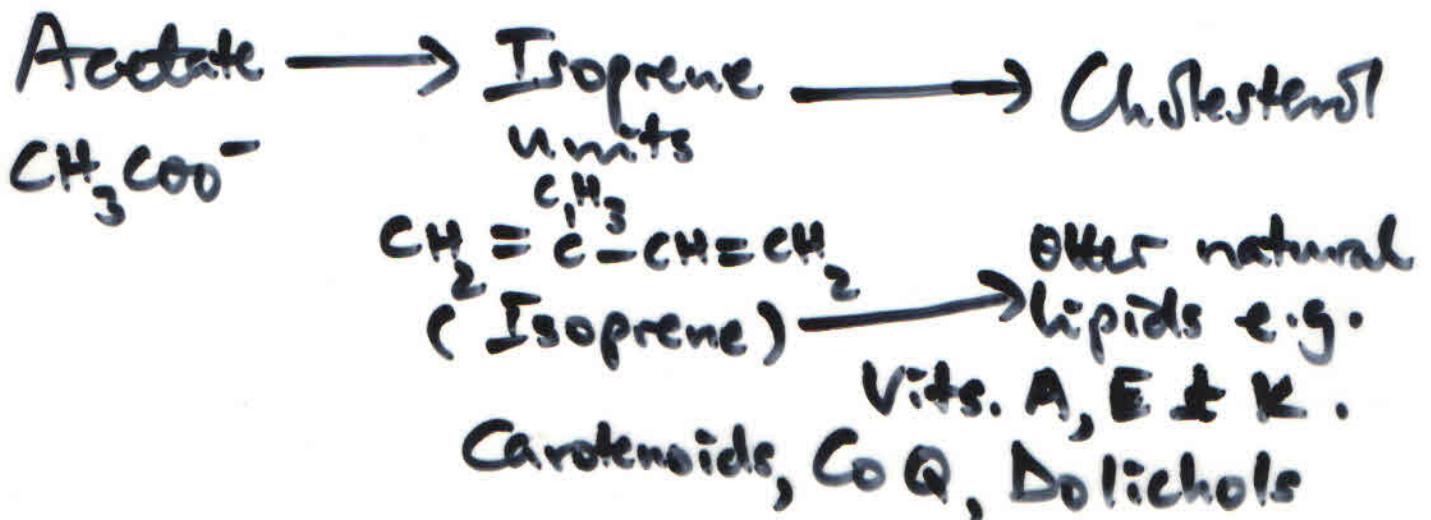 Acetate → Isoprene → Cholesterol
units
CH₃COO⁻
CH₃
CH₂=C-CH=CH₂
(Isoprene) → Other natural
lipids e.g.
Vits. A, E & K.
Carotenoids, CoQ, Dolichols